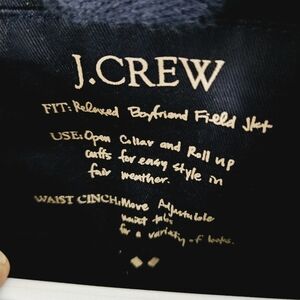 J.CREW
FIT: Relaxed Boyfriend Field Jkt
USE: Open Collar and Roll up
cuffs for easy style in
fair weather.
WAIST CINCH: Move Adjustable
waist tabs
for a variety of looks.